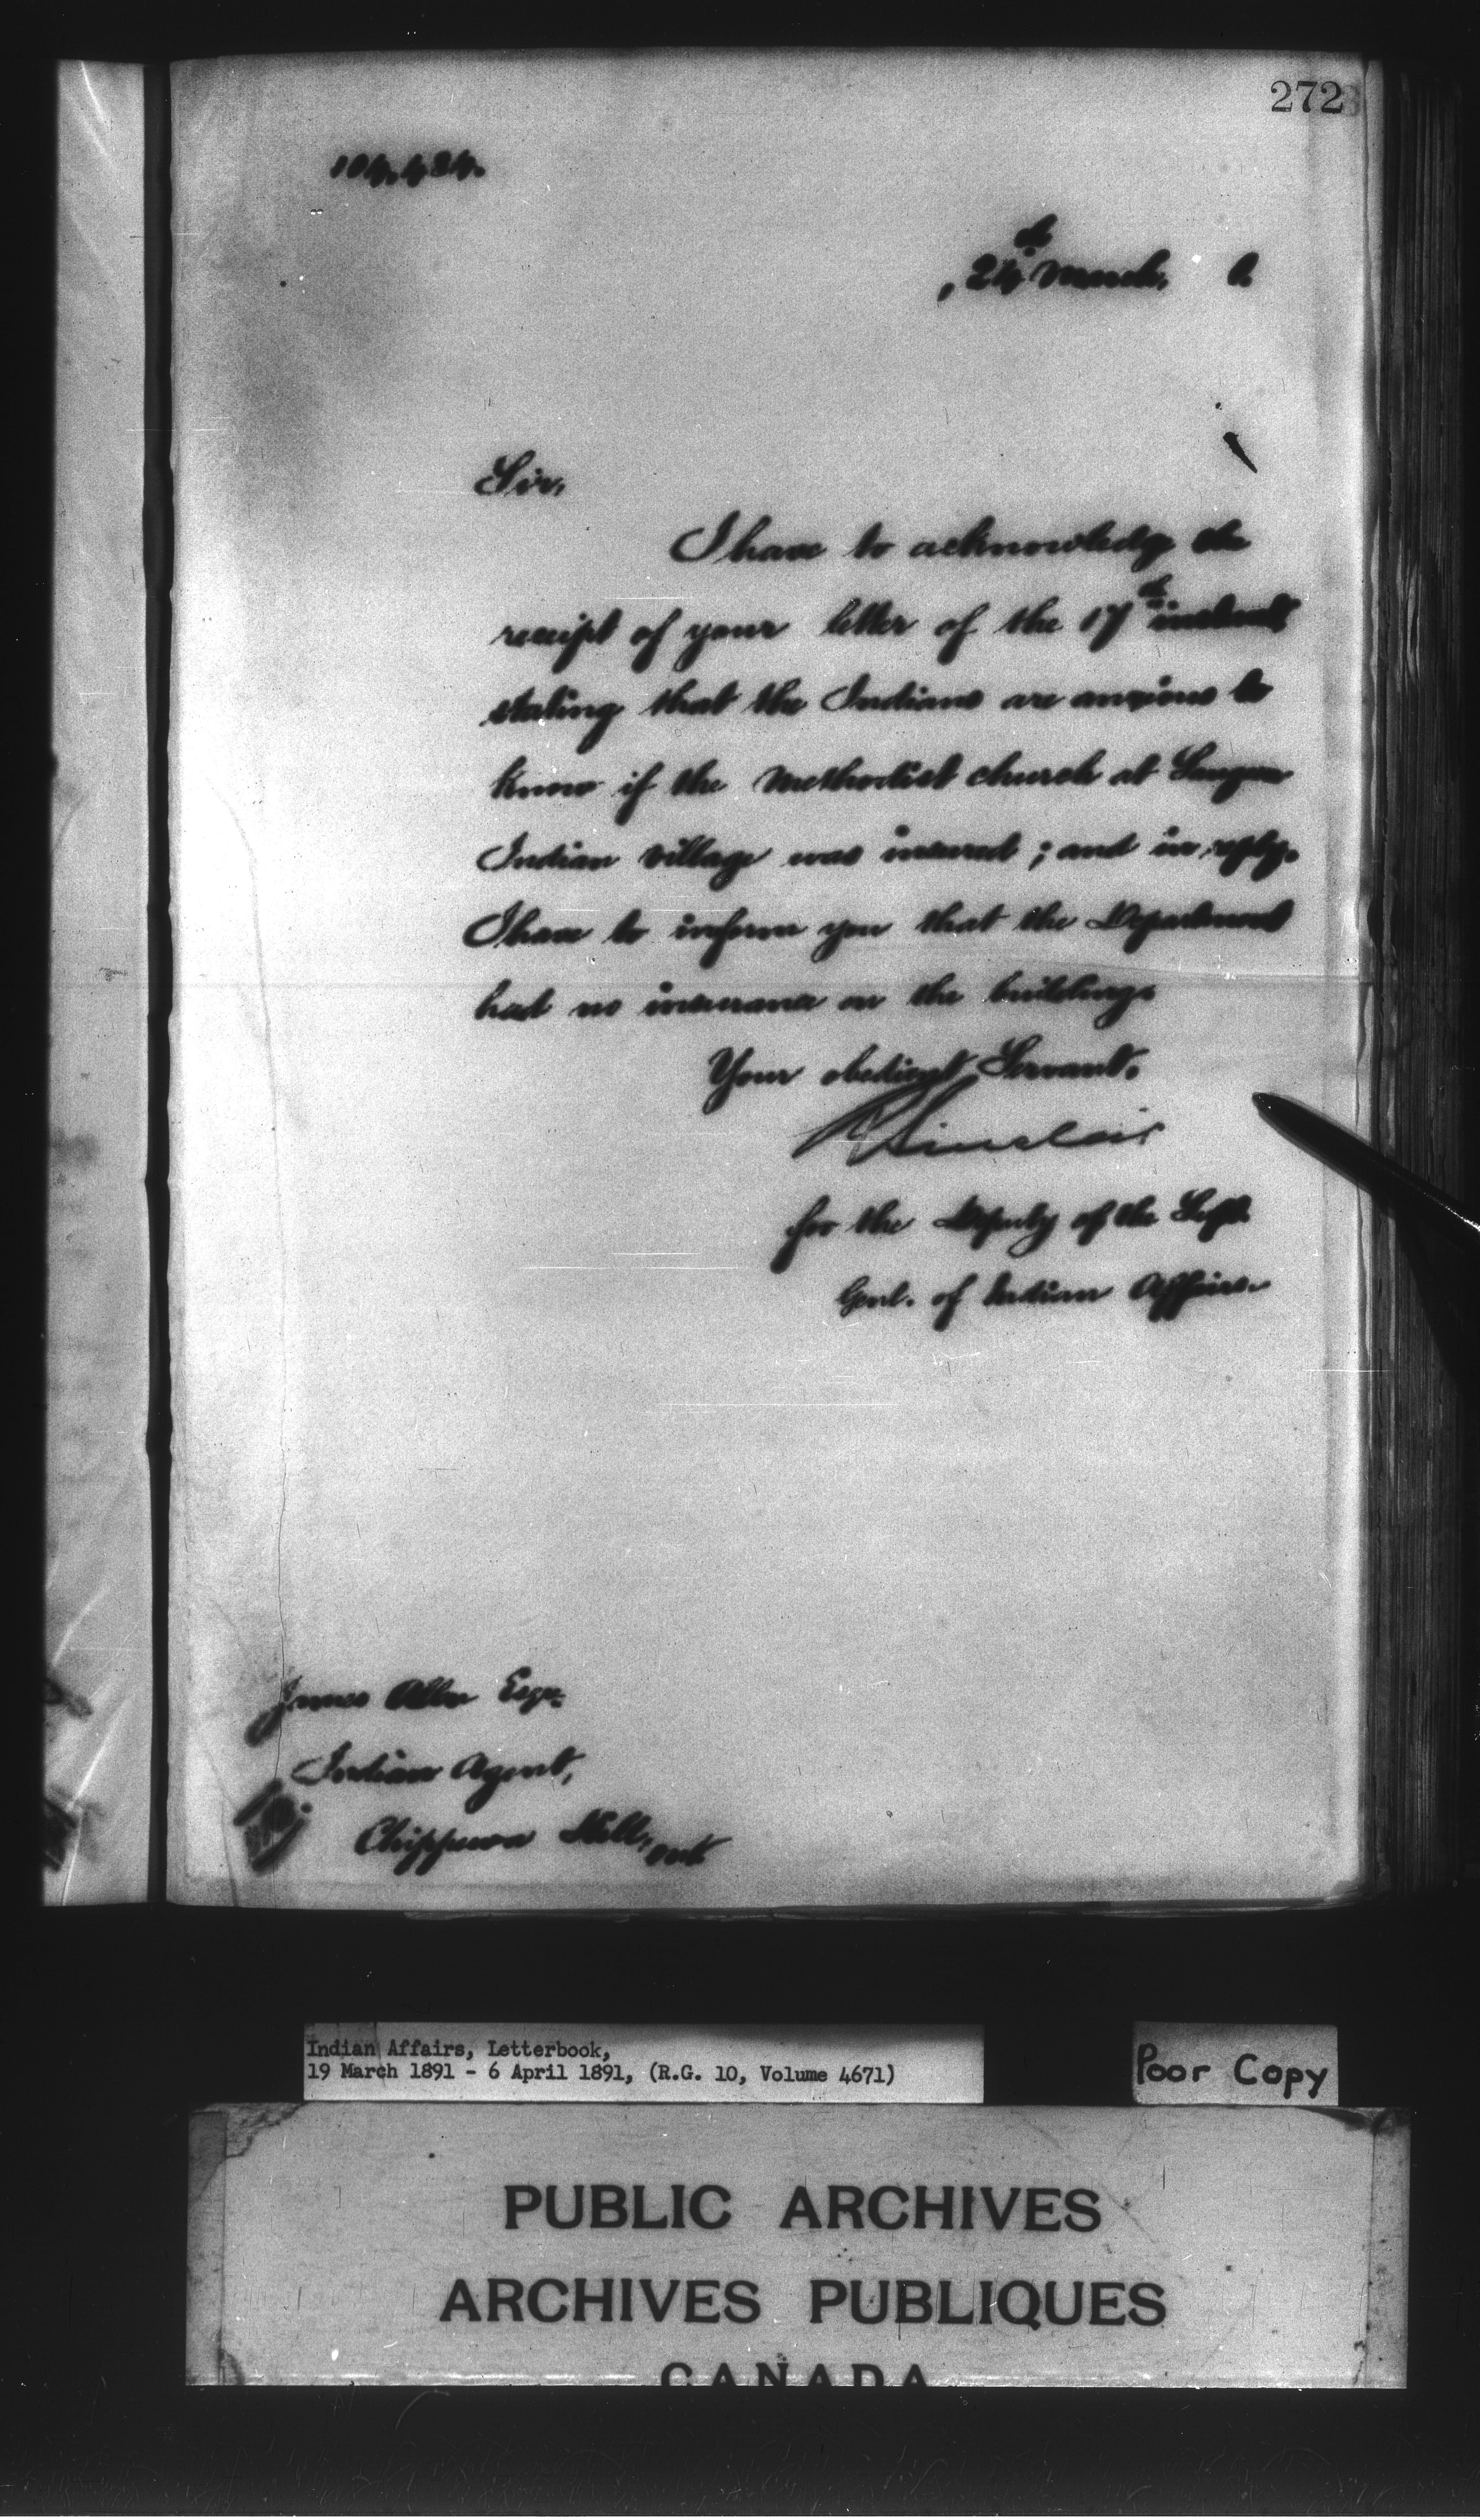 272
104,484.
24th March, 1.
Sir,
I have to acknowledge the
receipt of your letter of the 17th instant
stating that the Indians are anxious to
know if the Methodist church at Saugeen
Indian village was insured; and in reply.
I have to inform you that the Department
had no insurance on the building.
Your obedient Servant.
Sinclair
for the Deputy of the Supt.
Genl. of Indian Affairs.
James Allen Esqr.
Indian Agent,
Chippewa Hill, Ont
Indian Affairs, Letterbook,
19 March 1891 - 6 April 1891, (R.G. 10, Volume 4671)
Poor Copy
PUBLIC ARCHIVES
ARCHIVES PUBLIQUES
CANADA